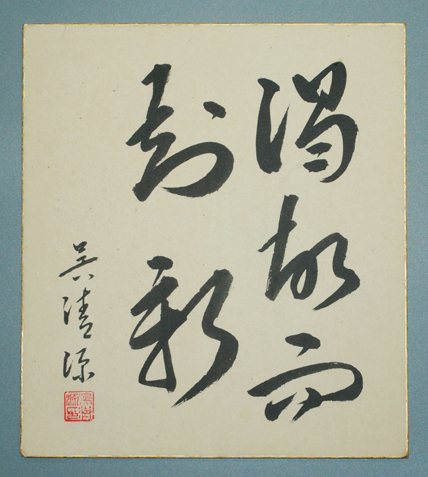 温故而
知新
呉清源